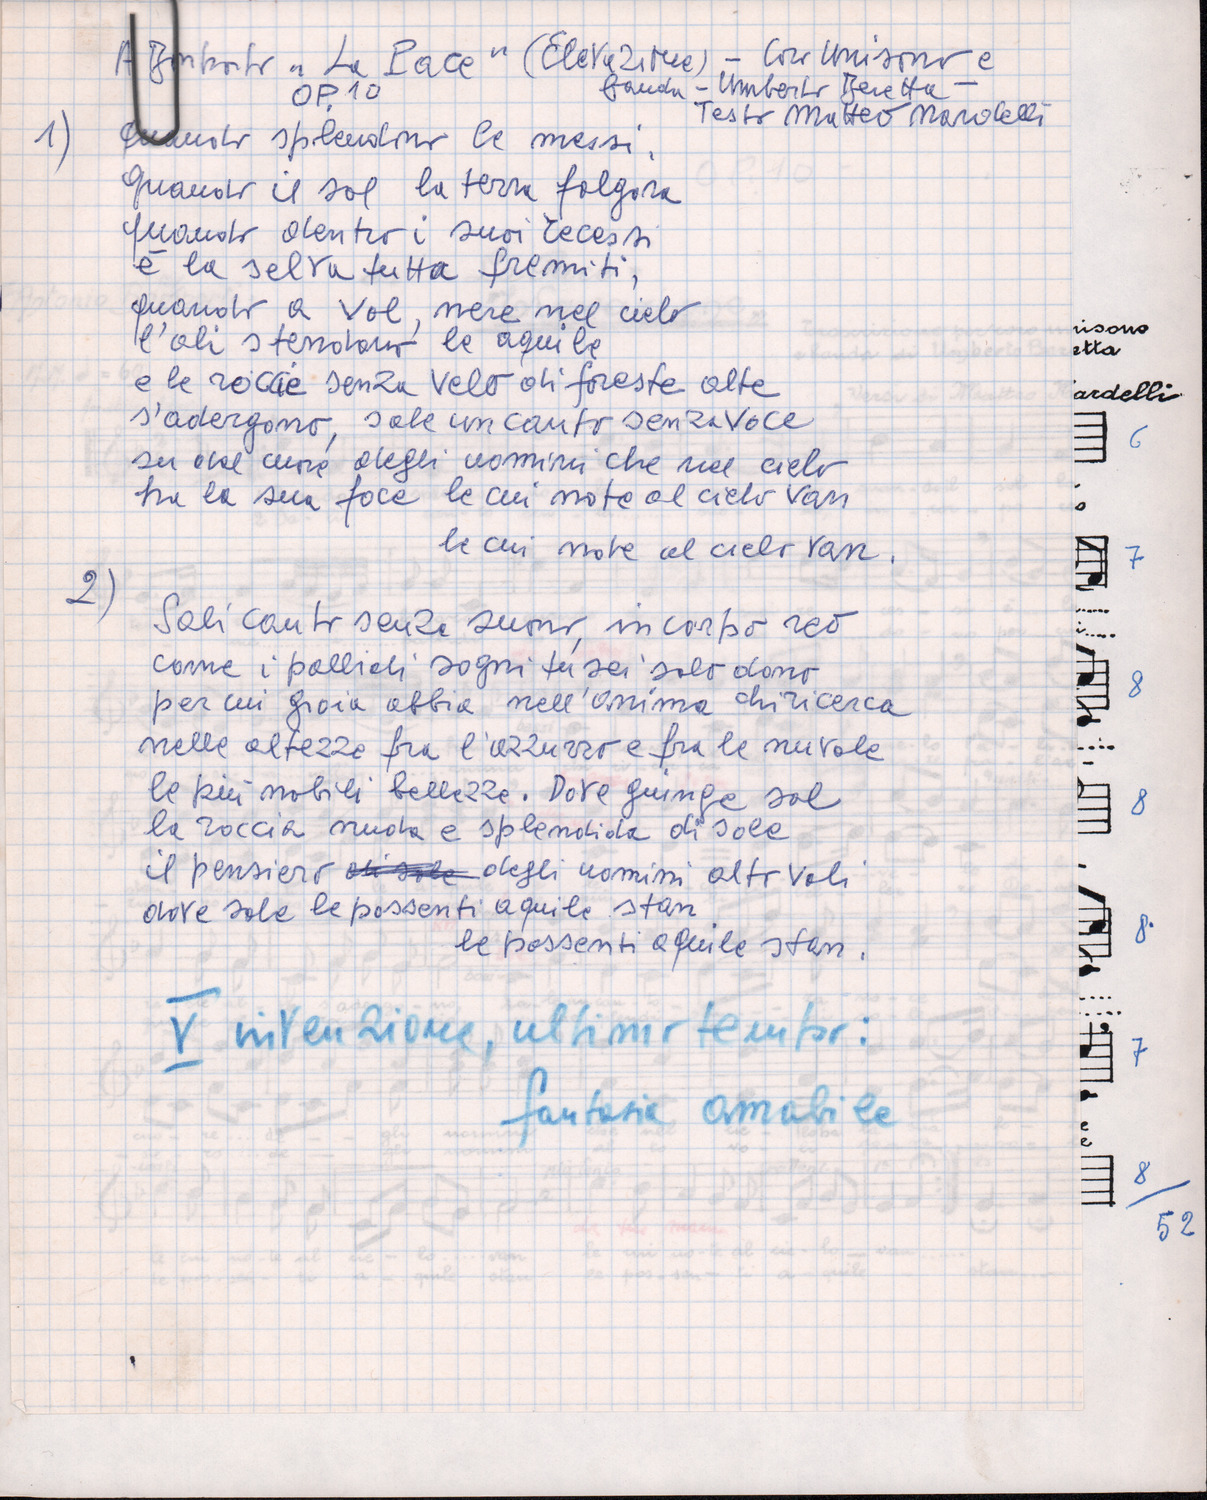 A "La Pace" (Elevazione) - Coro Unisono e
OP. 10
banda - Umberto Beretta -
Testo Matteo Nardelli
1)
Quando splendono le messi,
Quando il sol la terra folgora
quando dentro i suoi recessi
è la selva tutta fremiti,
quando a vol, nere nel cielo
l'ali stendono le aquile
e le roccie senza velo di foreste alte
s'adergono, sale un canto senza voce
su dal cuore degli uomini che nel cielo
ha la sua foce le cui note al cielo van
le cui note al cielo van.
2)
Sali canto senza suono, incorporeo
come i pallidi sogni tu sei solo dono
per cui gioia abbia nell'anima chi ricerca
nelle altezze fra l'azzurro e fra le nuvole
le più nobili bellezze. Dove giunge sol
la roccia nuda e splendida di sole
il pensiero di sole degli uomini alto voli
dove sole le possenti aquile stan
le possenti aquile stan.
V invenzione, ultimo tempo:
fantasia amabile
nisono
etta
ardelli
6
7
8
8
8.
7
8
52